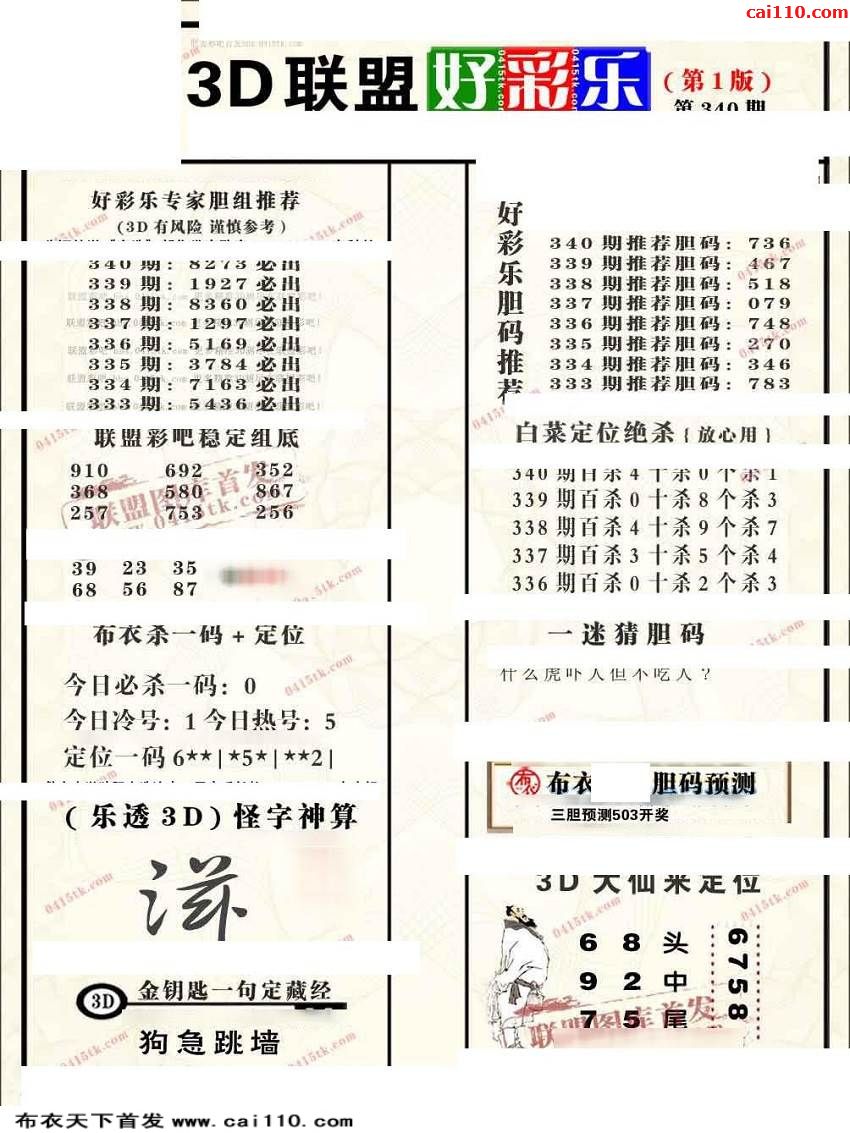 cai110.com
3D联盟好彩乐
(第1版)
第340期
好彩乐专家胆组推荐
(3D有风险 谨慎参考)
340期: 8273必出
339期: 1927必出
338期: 8360必出
337期: 1297必出
336期: 5169必出
335期: 3784必出
334期: 7163必出
333期: 5436必出
联盟彩吧稳定组底
910 692 352
368 580 867
257 753 256
39 23 35
68 56 87
布衣杀一码+定位
今日必杀一码: 0
今日冷号: 1 今日热号: 5
定位一码 6**|*5*|**2|
(乐透3D)怪字神算
滋
3D 金钥匙一句定藏经
狗急跳墙
好彩乐胆码推荐
340期推荐胆码: 736
339期推荐胆码: 467
338期推荐胆码: 518
337期推荐胆码: 079
336期推荐胆码: 748
335期推荐胆码: 270
334期推荐胆码: 346
333期推荐胆码: 783
白菜定位绝杀{放心用}
340期百杀4十杀0个杀1
339期百杀0十杀8个杀3
338期百杀4十杀9个杀7
337期百杀3十杀5个杀4
336期百杀0十杀2个杀3
一迷猜胆码
什么虎吓人但不吃人?
布衣 胆码预测
三胆预测503开奖
3D大仙来定位
6 8 头
9 2 中
7 5 尾
6758
联盟图库首发
0415tk.com
布衣天下首发 www.cai110.com